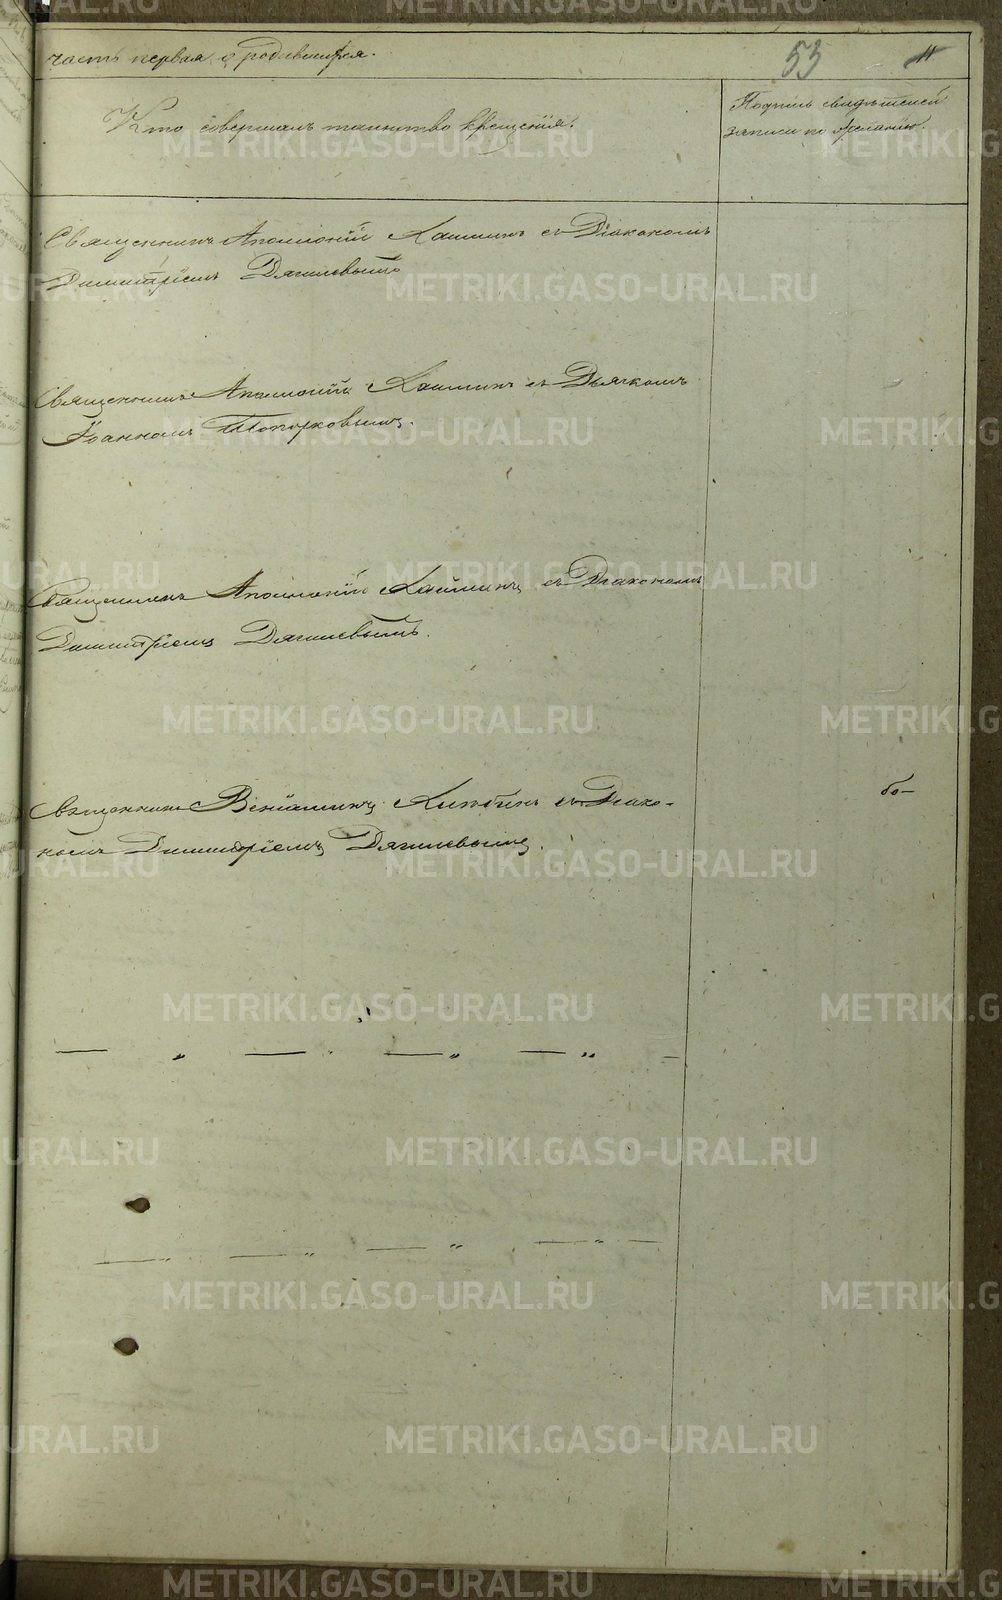 часть первая, о родившихся.
53
11
Кто совершалъ таинство крещенія.
Подпись свидѣтелей
записи по желанію.
Священникъ Аполлоній Кашинъ съ Діакономъ
Димитріемъ Дягилевымъ
Священникъ Аполлоній Кашинъ съ Дьячкомъ
Іоанномъ Топорковымъ.
Священникъ Аполлоній Кашинъ съ Діакономъ
Димитріемъ Дягилевымъ.
Священникъ Веніаминъ съ Діако-
номъ Димитріемъ Дягилевымъ.
METRIKI.GASO-URAL.RU